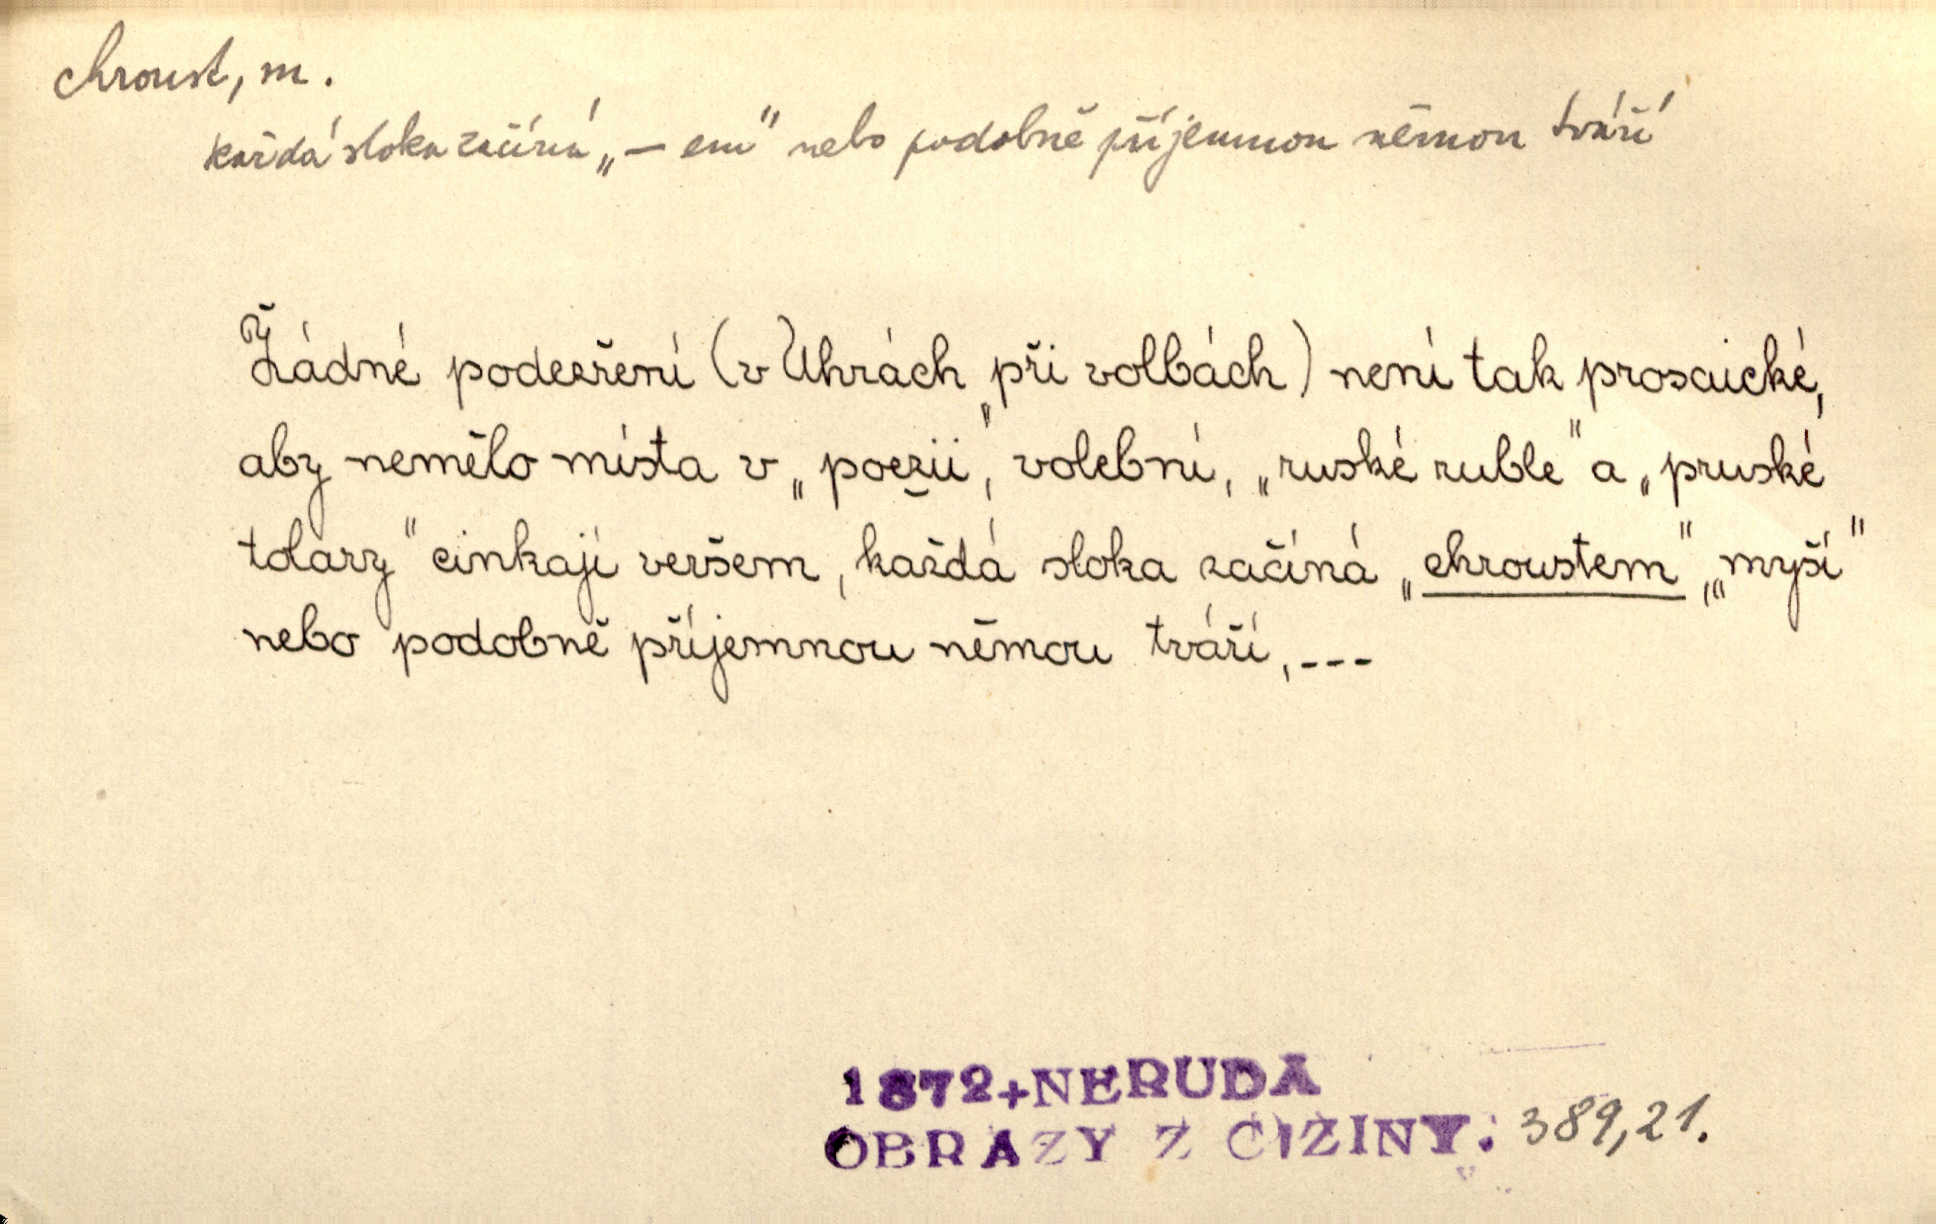 chroust, m.
každá sloka začíná „— em" nebo podobně příjemnou němou tváří
Žádné podezření (v Uhrách při volbách) není tak prosaické,
aby nemělo místa v „poezii", volební, „ruské ruble" a „pruské
tolary" cinkají veršem, každá sloka začíná „chroustem", „myší"
nebo podobně příjemnou němou tváří, ---
1872+NERUDA
OBRAZY Z CIZINY. 389,21.